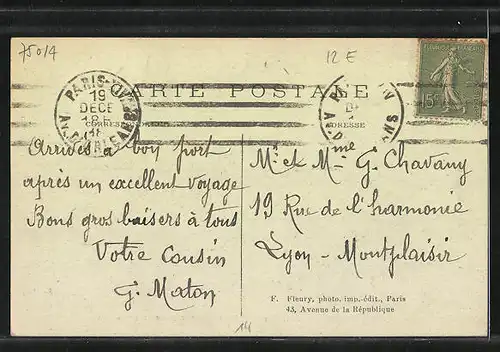 75014
12 E
CARTE POSTALE
PARIS
19
DECE
CORRES
ADRESSE
15c
Arrivés à bon port
après un excellent voyage
Bons gros baisers à tous
Votre Cousin
G. Maton
Mr et Mme G. Chavany
19 Rue de l'harmonie
Lyon - Montplaisir
F. Fleury, photo. imp.-édit., Paris
43, Avenue de la République
14